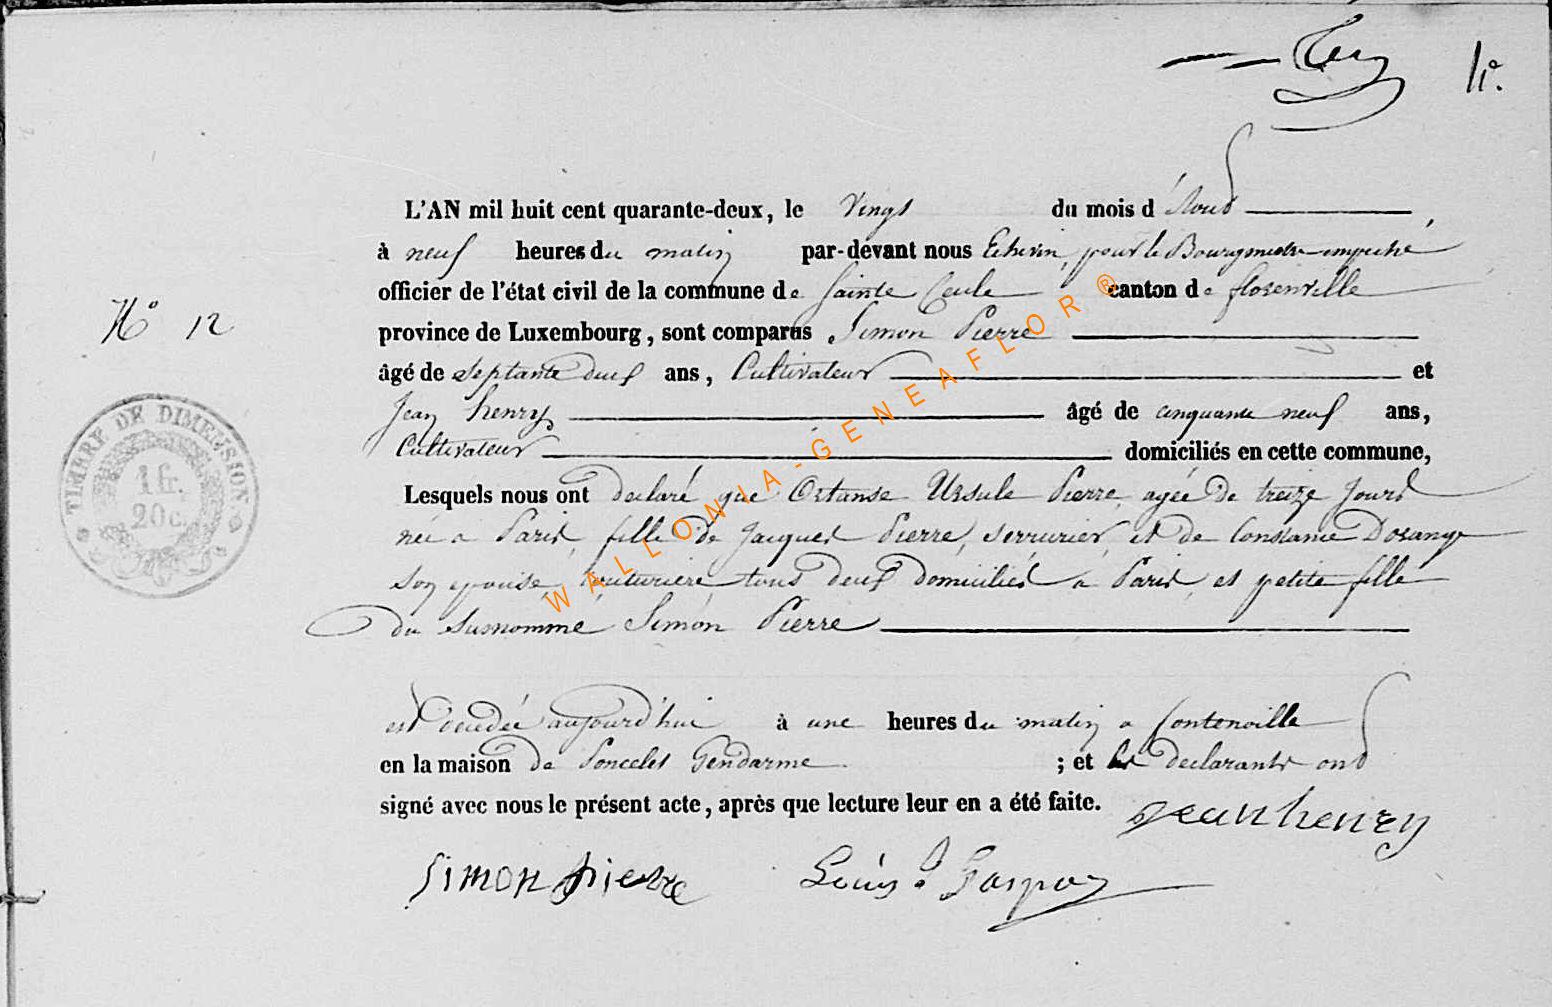 11e.
N° 12
TIMBRE DE DIMENSION
1 fr.
20 c.
L'AN mil huit cent quarante-deux, le Vingt du mois d'Aout,
à neuf heures du matin par-devant nous Echevin, pour le Bourgmestre empeché
officier de l'état civil de la commune de Sainte Cecile canton de florenville
province de Luxembourg, sont comparus Simon Pierre
âgé de Septante deux ans, Cultivateur et
Jean henry âgé de cinquante neuf ans,
Cultivateur domiciliés en cette commune,
Lesquels nous ont declaré que Ortanse Ursule Pierre, agée de treize Jours
née a Paris, fille de Jacques Pierre, serrurier, et de Constance Dosange
son epouse, couturiere, tous deux domiciliés a Paris, et petite fille
du Susnommé Simon Pierre
est decedée aujourd'hui à une heures du matin a fontenoille
en la maison de Poncelet Gendarme ; et les declarants ont
signé avec nous le présent acte, après que lecture leur en a été faite.
Jean henry
Simon pierre
WALLONIA-GENEAFLOR ®